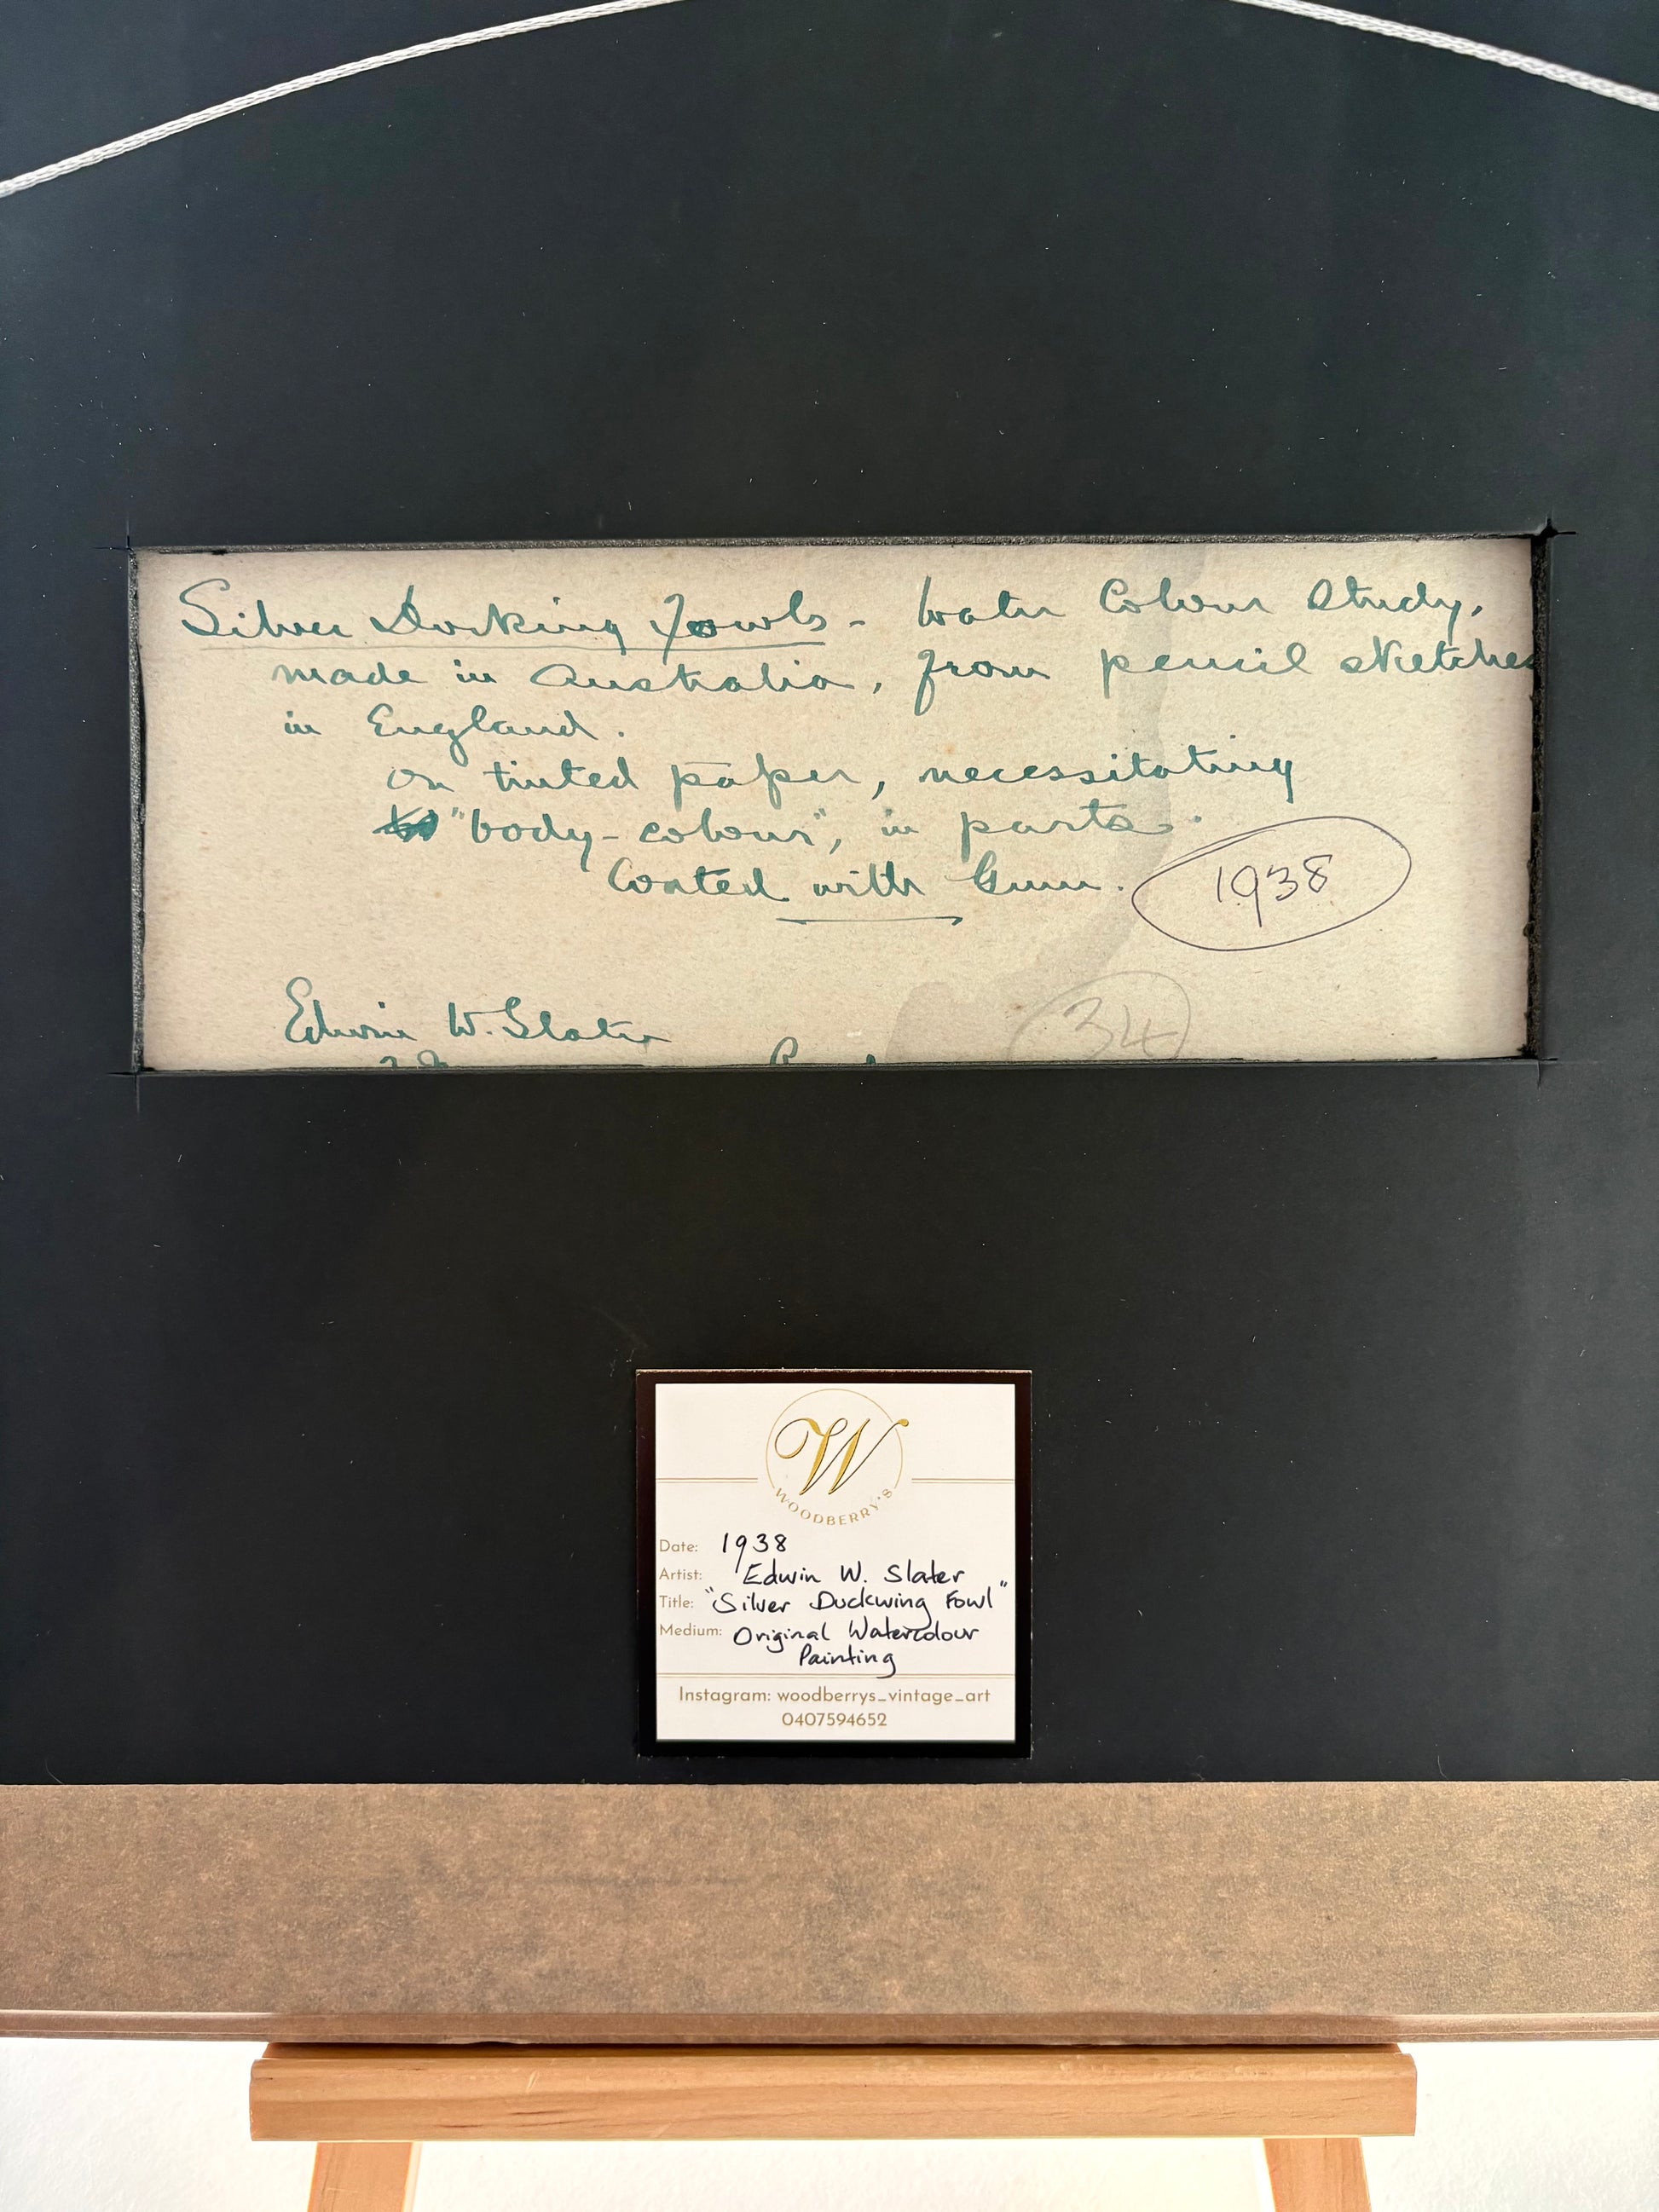 Silver Dorking Fowls - Water Colour Study,
made in Australia, from pencil sketches
in England.
on tinted paper, necessitating
"body-colour", in parts.
Coated with Gum.
1938
Edwin W. Slater
34
W
WOODBERRY'S
Date: 1938
Artist: Edwin W. Slater
Title: "Silver Duckwing Fowl"
Medium: Original Watercolour
Painting
Instagram: woodberrys_vintage_art
0407594652